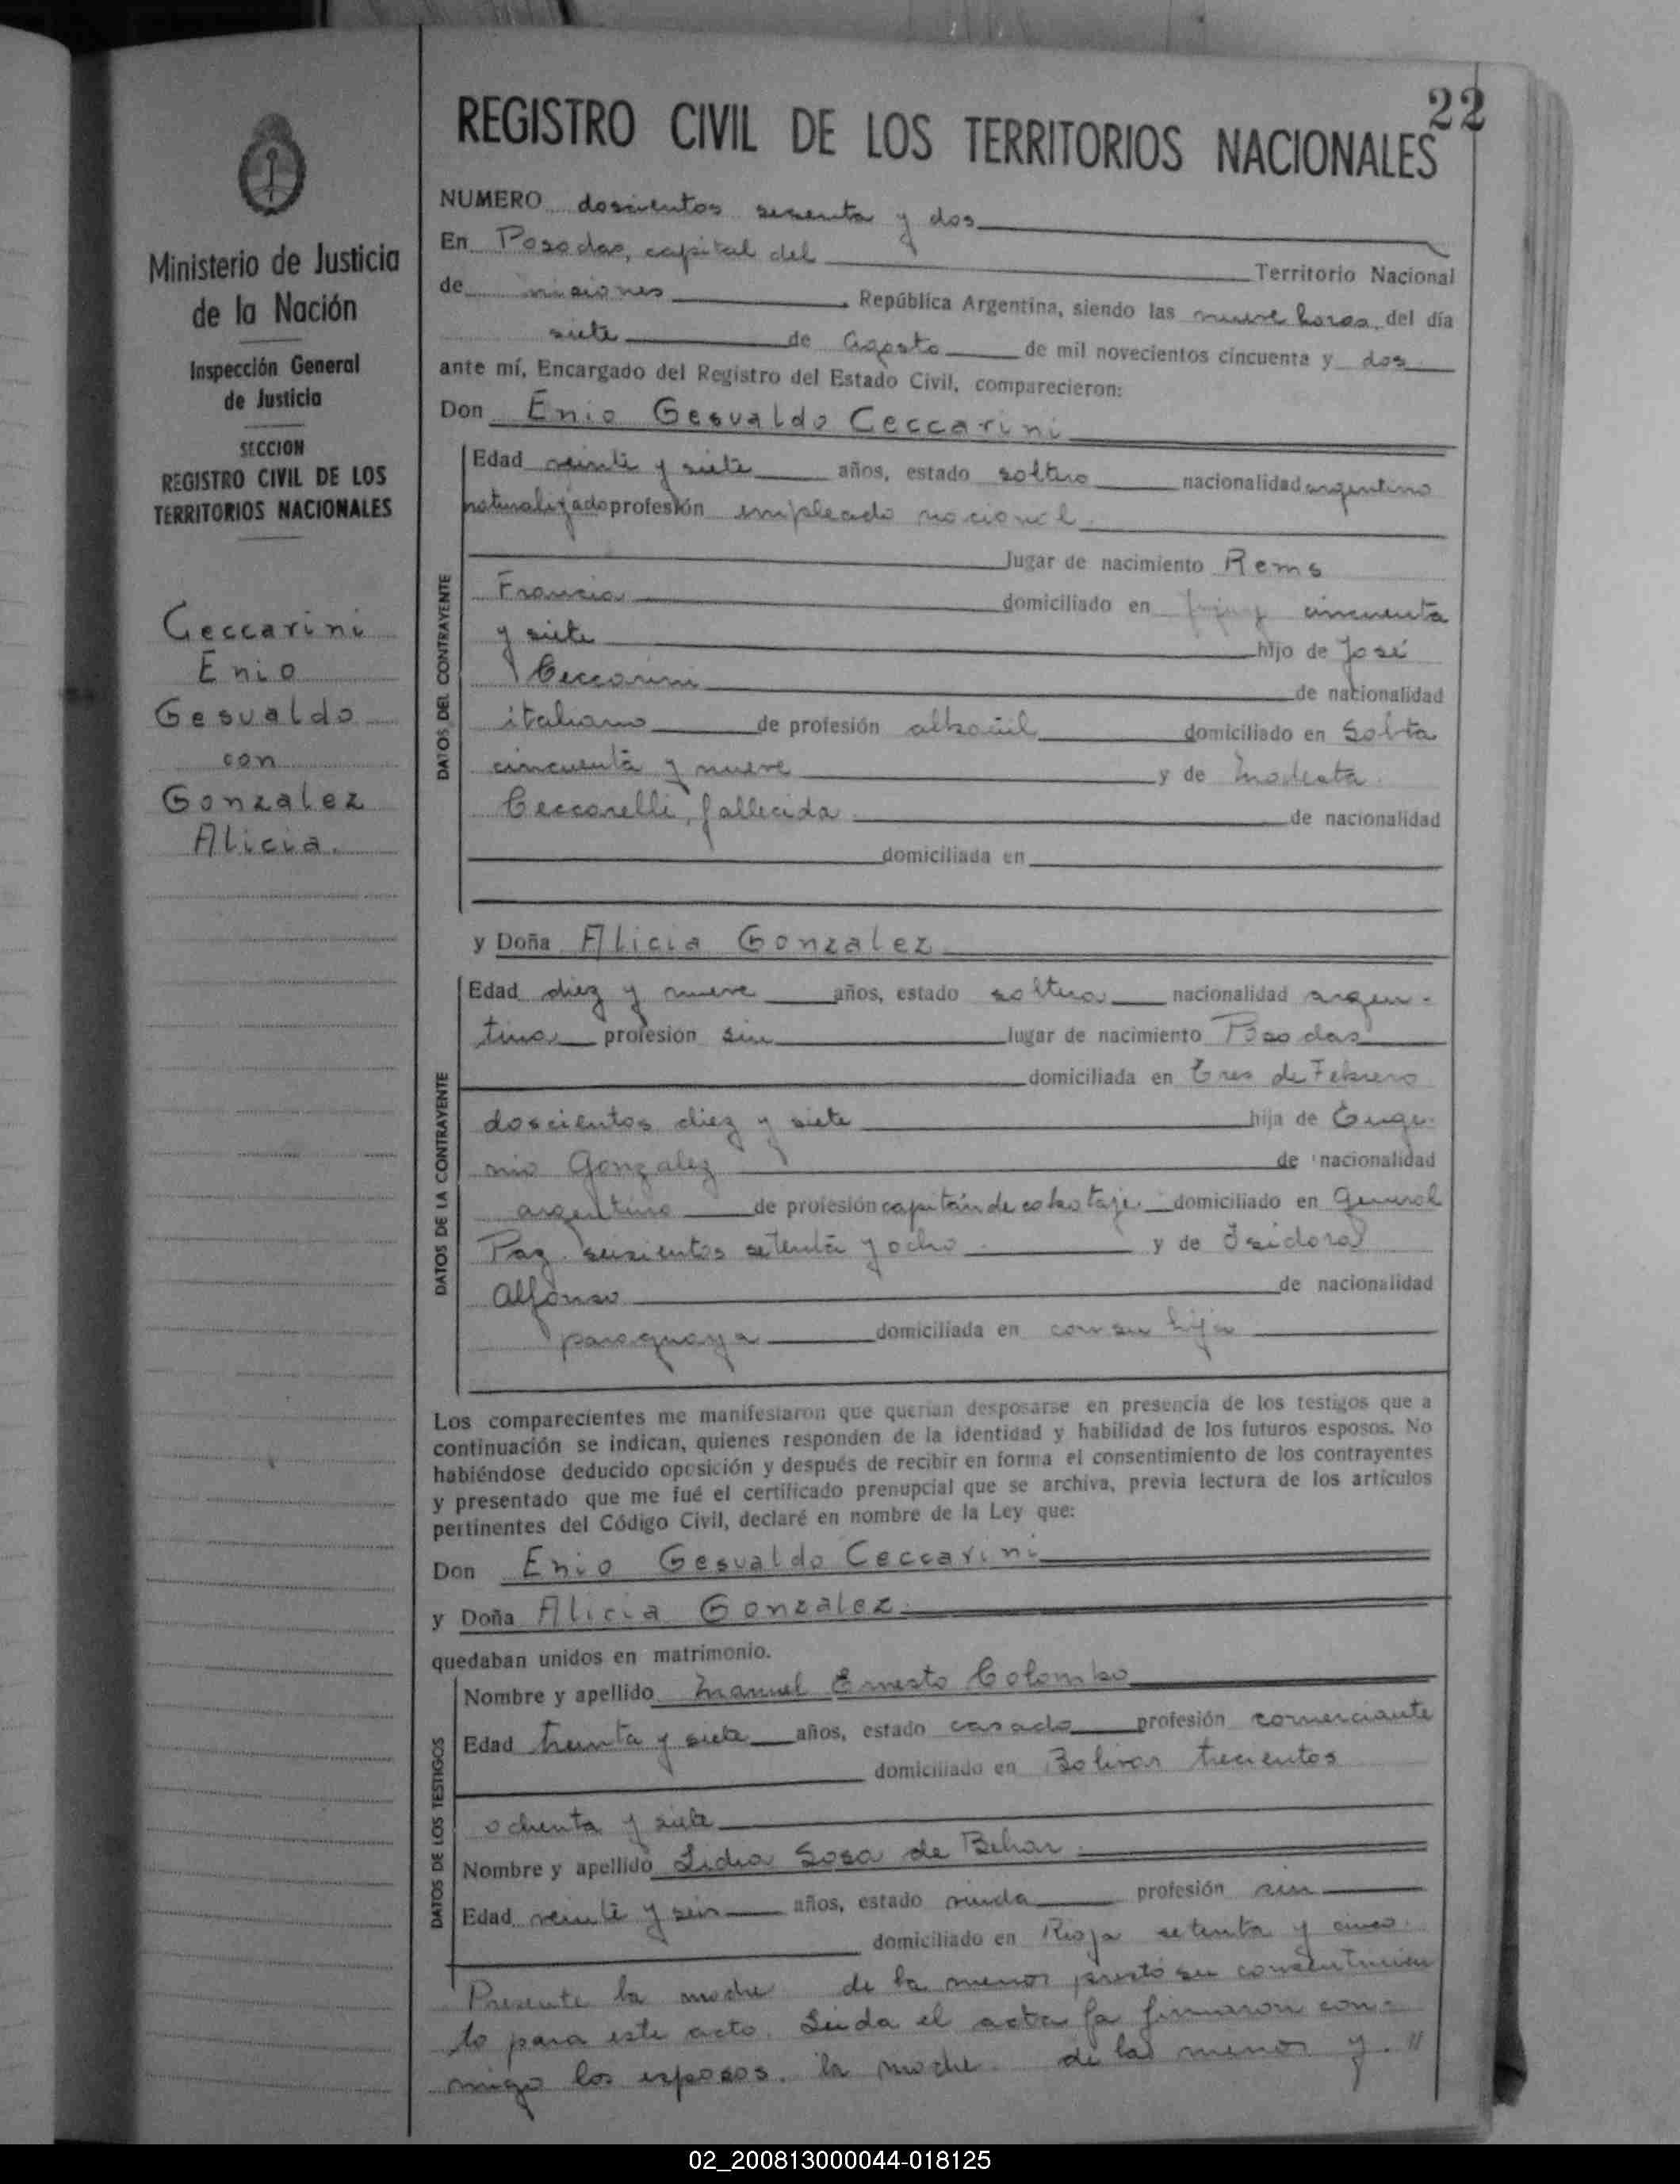 22
REGISTRO CIVIL DE LOS TERRITORIOS NACIONALES
Ministerio de Justicia
de la Nación
Inspección General
de Justicia
SECCION
REGISTRO CIVIL DE LOS
TERRITORIOS NACIONALES
Ceccarini
Enio
Gesualdo
con
Gonzalez
Alicia.
NUMERO doscientos sesenta y dos
En Posadas, capital del Territorio Nacional
de misiones República Argentina, siendo las nueve horas, del día
siete de Agosto de mil novecientos cincuenta y dos
ante mí, Encargado del Registro del Estado Civil, comparecieron:
Don Enio Gesualdo Ceccarini
DATOS DEL CONTRAYENTE
Edad veinte y siete años, estado soltero nacionalidad argentino
naturalizado profesión empleado nacional
lugar de nacimiento Rems
Francia domiciliado en Jujuy cincuenta
y siete hijo de José
Ceccarini de nacionalidad
italiano de profesión albañil domiciliado en Salta
cincuenta y nueve y de Modesta
Ceccarelli, fallecida de nacionalidad
domiciliada en
y Doña Alicia Gonzalez
DATOS DE LA CONTRAYENTE
Edad diez y nueve años, estado soltera nacionalidad argen-
tina profesión sin lugar de nacimiento Posadas
domiciliada en Tres de Febrero
doscientos diez y siete hija de Euge-
nio Gonzalez de nacionalidad
argentino de profesión capitán de cabotaje domiciliado en General
Paz seiscientos setenta y ocho y de Isidora
Alfonso de nacionalidad
paraguaya domiciliada en con su hija
Los comparecientes me manifestaron que querían desposarse en presencia de los testigos que a
continuación se indican, quienes responden de la identidad y habilidad de los futuros esposos. No
habiéndose deducido oposición y después de recibir en forma el consentimiento de los contrayentes
y presentado que me fué el certificado prenupcial que se archiva, previa lectura de los artículos
pertinentes del Código Civil, declaré en nombre de la Ley que:
Don Enio Gesualdo Ceccarini
y Doña Alicia Gonzalez
quedaban unidos en matrimonio.
DATOS DE LOS TESTIGOS
Nombre y apellido Manuel Ernesto Colombo
Edad treinta y siete años, estado casado profesión comerciante
domiciliado en Bolivar trecientos
ochenta y siete
Nombre y apellido Lidia Sosa de Behar
Edad veinte y seis años, estado viuda profesión sin
domiciliado en Rioja setenta y cinco.
Presente la madre de la menor prestó su consentimien
to para este acto. Leida el acta la firmaron con-
migo los esposos, la madre de la menor y. //
02_200813000044-018125